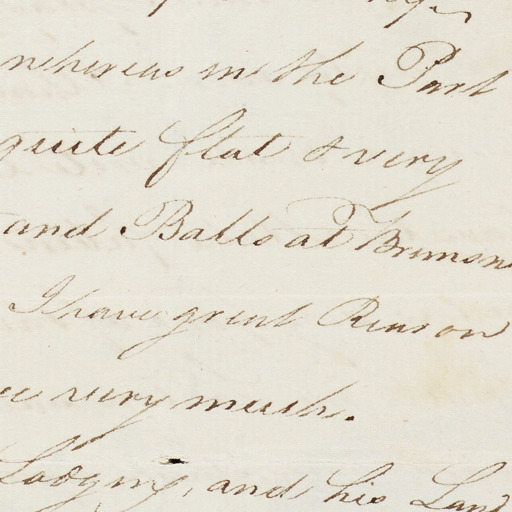 whereas in the Part
quite flat & very
and Balls at
I have great Reason
very much.
Lodging, and his Land